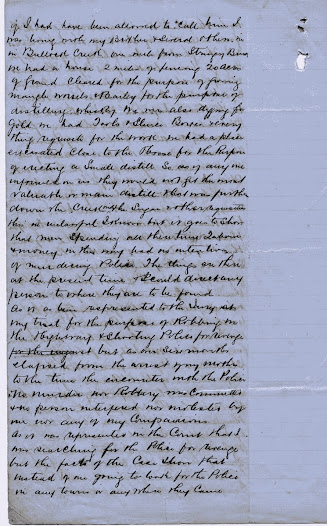 if I had have been allowed to call him I
was living with my Brother & several others in
on Bullock Creek one mile from Stringy Bark
we had a house 2 miles of fencing 20 acres
of ground cleared for the purpose of growing
mangle worsels & Barley for the purpose of
distilling whisky we were also digging for
Gold we had Tools & Sluice Boxes & every
thing requisite for the work we had a place
excavated close to the House for the Purpose
of erecting a small distill so as if any one
informed on us they would not get the most
valuable or main distill that was further
down the Creek
this in unlawful I know but it goes to show
that men spending all their time labour
& money in this way had no intention
of murdering Police The things are there
at the present time & I could direct any
person to where they are to be found
As was been represented to the Jury at
my trial for the purpose of Robbing on
the Highway & shooting Police for revenge
but over six months
elapsed from the arrest of my mother
to the time the encounter with the Police
No murder nor Robbery was Committed
& no person interfered nor molested by
me nor any of my Companions
As was represented in the Court that I
was searching for the Police for revenge
but the facts of the Case show that
instead of me going to look for the Police
in any town or any where they Came